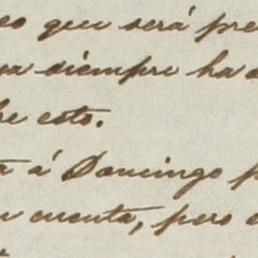 eo que será pre
ua siempre ha
he esto.
a á Domingo p
cuenta, pero